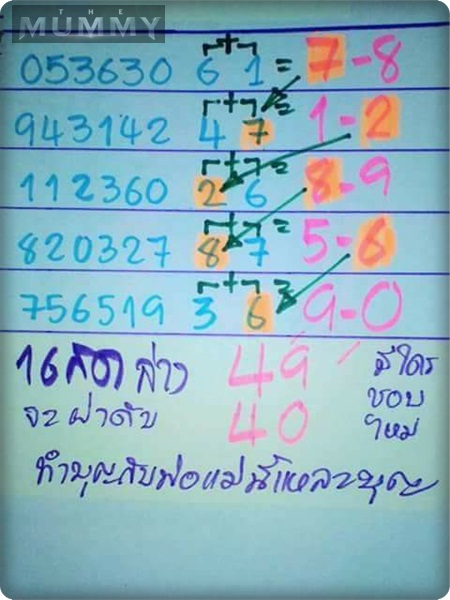 THE
MUMMY
053630 6 1 = 7-8
943142 4 7 = 1-2
112360 2 6 = 8-9
820327 8 7 = 5-6
756519 3 6 = 9-0
16 ล่าง 49 มีใคร
ชอบ
จะผ่าดับ 40 ไหม่
ทำบุญกับพ่อแม่นี่แหละบุญ